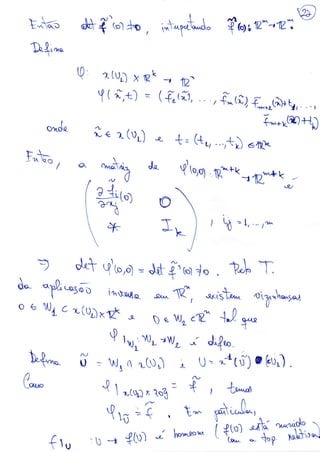 22
Então det f̃'(0) ≠ 0, interpretando f̃'(0): ℝᵐ → ℝᵐ.
Define
φ: x(U₁) × ℝᵏ → ℝⁿ
φ(x̃,t) = (f̃₁(x̃), ..., f̃ₘ(x̃), f̃ₘ₊₁(x̃)+t₁, ...,
f̃ₘ₊ₖ(x̃)+tₖ)
onde x̃ ∈ x(U₁) e t = (t₁, ..., tₖ) ∈ ℝᵏ
Então, a matriz de φ'(0,0): ℝᵐ⁺ᵏ → ℝᵐ⁺ᵏ é
( ∂f̃ᵢ/∂xⱼ (0) 0
* Iₖ ) , i,j = 1, ..., m
⇒ det φ'(0,0) = det f̃'(0) ≠ 0. Pelo T.
da aplicação inversa em ℝⁿ, existem vizinhanças
0 ∈ W₁ ⊂ x(U₁)×ℝᵏ e 0 ∈ W₂ ⊂ ℝⁿ tal que
φ|W₁: W₁ → W₂ é difeo.
Define Ũ = W₁ ∩ x(U₁) i U = x⁻¹(Ũ) (⊂ U₁).
Como φ|x(U₁)×{0} = f̃, temos
φ|Ũ = f̃. Em particular,
f|U : U → f(U) é homeom. (f(U) está munido
com a top. relativa)